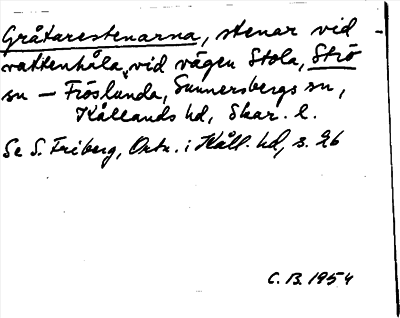 Gråtarestenarna, stenar vid
vattenhåla, vid vägen Stola, Strö
sn – Fröslunda, Sunnersbergs sn,
Kållands hd, Skar. l.
Se S. Friberg, Ortn. i Kåll. hd, s. 26
C. B. 1954